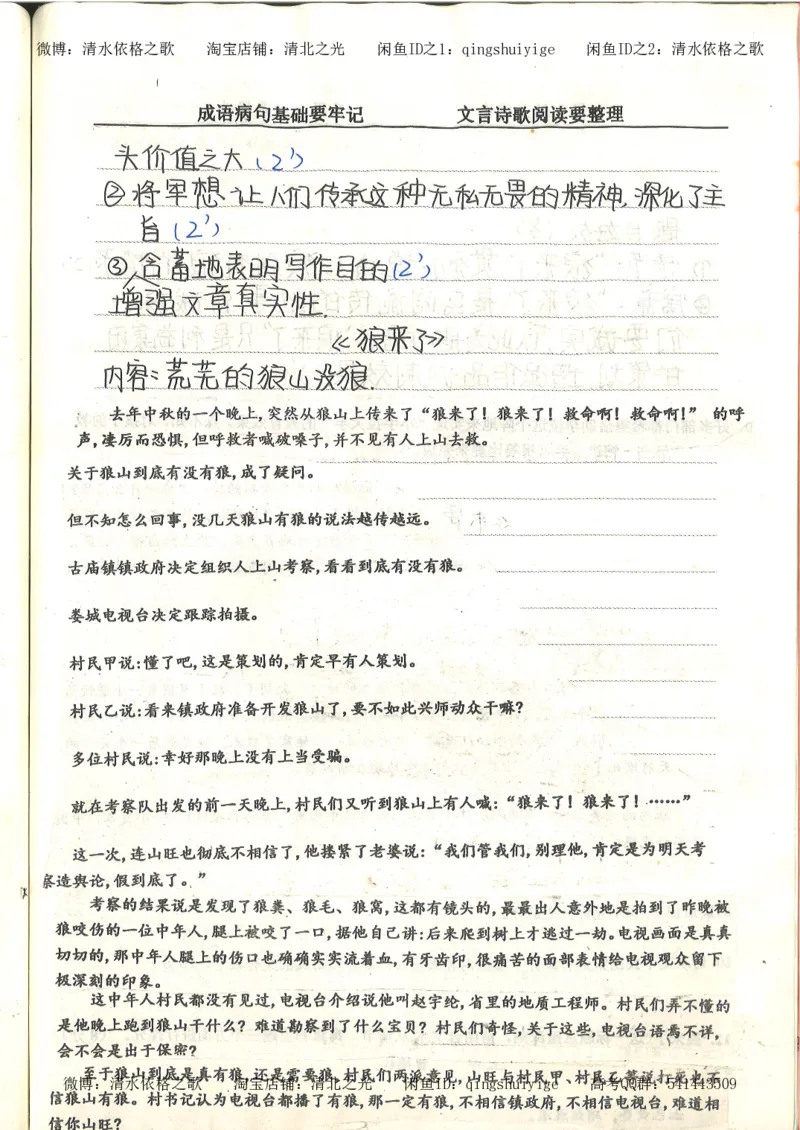 微博：清水依格之歌 淘宝店铺：清北之光 闲鱼ID之1：qingshuiyige 闲鱼ID之2：清水依格之歌
成语病句基础要牢记 文言诗歌阅读要整理
头价值之大(2')
②将罕想让人们传承这种无私无畏的精神,深化了主
旨(2')
③含蓄地表明写作目的(2')
增强文章真实性.
《狼来了》
内容:荒芜的狼山没狼.
去年中秋的一个晚上,突然从狼山上传来了“狼来了！狼来了！救命啊！救命啊！” 的呼
声,凄厉而恐惧,但呼救者喊破嗓子,并不见有人上山去救。
关于狼山到底有没有狼,成了疑问。
但不知怎么回事,没几天狼山有狼的说法越传越远。
古庙镇镇政府决定组织人上山考察,看看到底有没有狼。
娄城电视台决定跟踪拍摄。
村民甲说:懂了吧,这是策划的,肯定早有人策划。
村民乙说:看来镇政府准备开发狼山了,要不如此兴师动众干嘛?
多位村民说:幸好那晚上没有上当受骗。
就在考察队出发的前一天晚上,村民们又听到狼山上有人喊:“狼来了！狼来了！……”
这一次,连山旺也彻底不相信了,他搂紧了老婆说:“我们管我们,别理他,肯定是为明天考
察造舆论,假到底了。”
考察的结果说是发现了狼粪、狼毛、狼窝,这都有镜头的,最最出人意外地是拍到了昨晚被
狼咬伤的一位中年人,腿上被咬了一口,据他自己讲:后来爬到树上才逃过一劫。电视画面是真真
切切的,那中年人腿上的伤口也确确实实流着血,有牙齿印,很痛苦的面部表情给电视观众留下
极深刻的印象。
这中年人村民都没有见过,电视台介绍说他叫赵宇纶,省里的地质工程师。村民们弄不懂的
是他晚上跑到狼山干什么？难道勘察到了什么宝贝？村民们奇怪,关于这些,电视台语焉不详,
会不会是出于保密?
至于狼山到底是真有狼,还是需要狼,村民们两派意见,山旺与村民甲、村民乙等说打死也不
微博：清水依格之歌 淘宝店铺：清北之光 闲鱼ID之1：qingshuiyige 高考QQ群：541443509
信狼山有狼。村书记认为电视台都播了有狼,那一定有狼,不相信镇政府,不相信电视台,难道相
信你山旺?